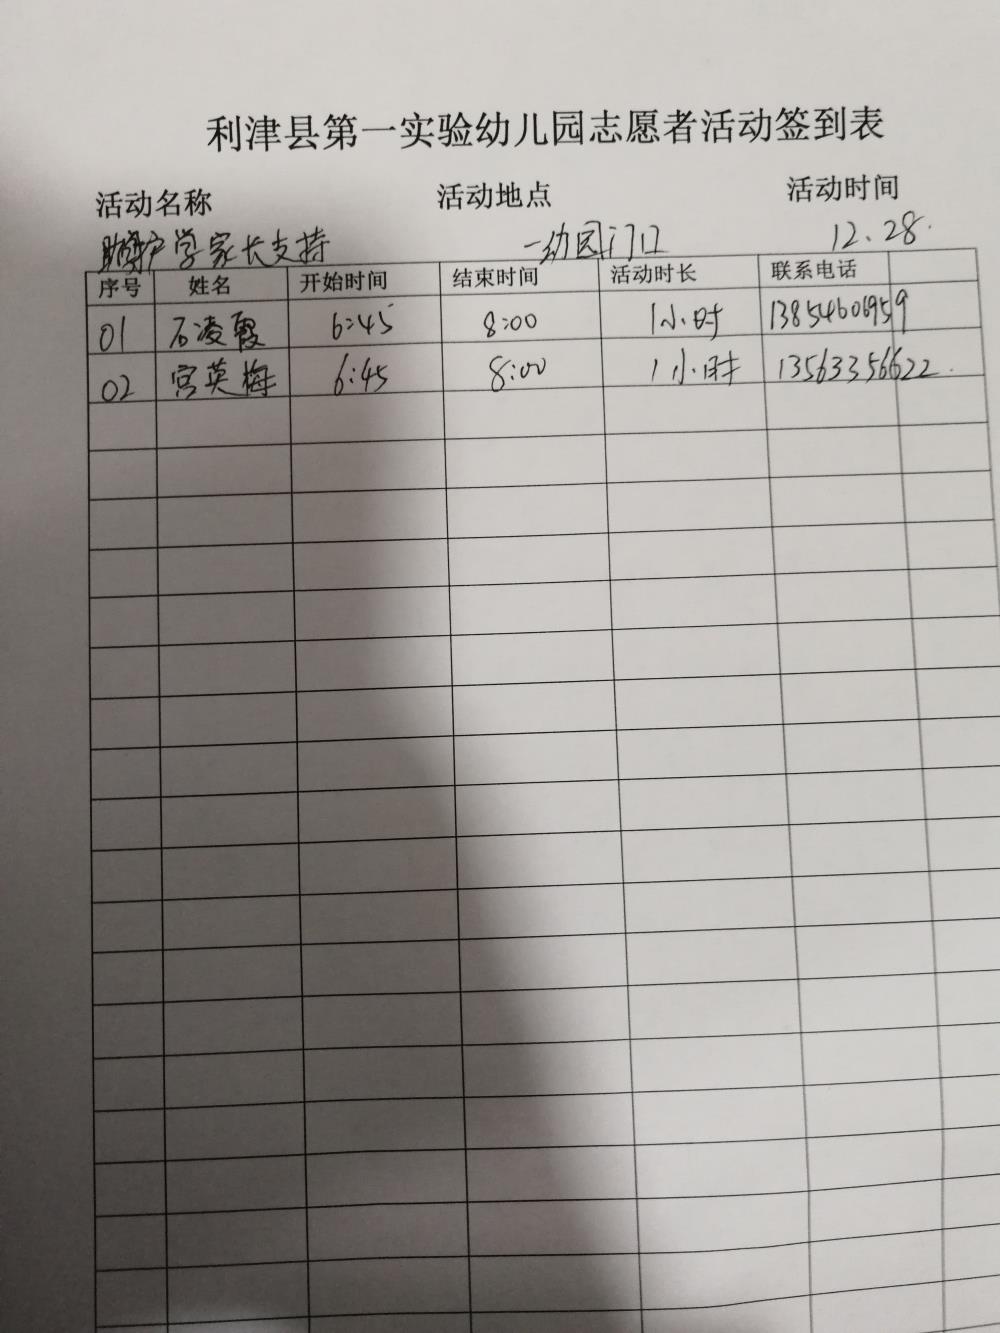 利津县第一实验幼儿园志愿者活动签到表
活动名称 活动地点 活动时间
护学家长支持 一幼园门口 12.28.
序号 姓名 开始时间 结束时间 活动时长 联系电话
01 石凌霞 6:45 8:00 1小时 13854606959
02 宫英梅 6:45 8:00 1小时 13563356622.